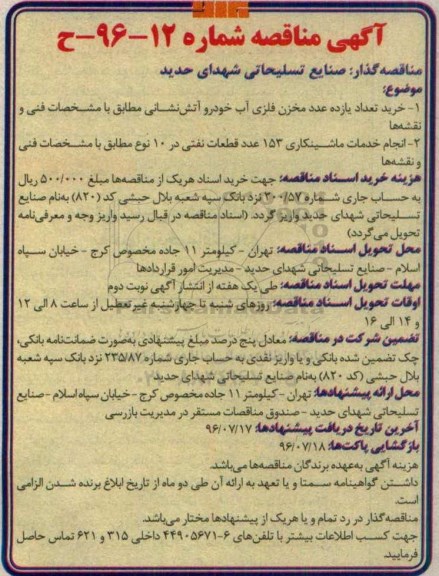 آگهی مناقصه شماره ۱۲-۹۶-ح
مناقصه‌گذار: صنایع تسلیحاتی شهدای حدید
موضوع:
۱- خرید تعداد یازده عدد مخزن فلزی آب خودرو آتش‌نشانی مطابق با مشخصات فنی و
نقشه‌ها
۲- انجام خدمات ماشینکاری ۱۵۳ عدد قطعات نفتی در ۱۰ نوع مطابق با مشخصات فنی
و نقشه‌ها
هزینه خرید اسناد مناقصه: جهت خرید اسناد هریک از مناقصه‌ها مبلغ ۵۰۰/۰۰۰ ریال
به حساب جاری شماره ۲۰۰/۵۷ نزد بانک سپه شعبه بلال حبشی کد (۸۲۰) به‌نام صنایع
تسلیحاتی شهدای حدید واریز گردد. (اسناد مناقصه در قبال رسید واریز وجه و معرفی‌نامه
تحویل می‌گردد)
محل تحویل اسناد مناقصه: تهران - کیلومتر ۱۱ جاده مخصوص کرج - خیابان سپاه
اسلام - صنایع تسلیحاتی شهدای حدید - مدیریت امور قراردادها
مهلت تحویل اسناد مناقصه: طی یک هفته از انتشار آگهی نوبت دوم
اوقات تحویل اسناد مناقصه: روزهای شنبه تا چهارشنبه غیرتعطیل از ساعت ۸ الی ۱۲
و ۱۴ الی ۱۶
تضمین شرکت در مناقصه: معادل پنج درصد مبلغ پیشنهادی به‌صورت ضمانت‌نامه بانکی،
چک تضمین شده بانکی و یا واریز نقدی به حساب جاری شماره ۲۳۵/۸۷ نزد بانک سپه شعبه
بلال حبشی (کد ۸۲۰) به‌نام صنایع تسلیحاتی شهدای حدید
محل ارائه پیشنهادها: تهران - کیلومتر ۱۱ جاده مخصوص کرج - خیابان سپاه اسلام - صنایع
تسلیحاتی شهدای حدید - صندوق مناقصات مستقر در مدیریت بازرسی
آخرین تاریخ دریافت پیشنهادها: ۹۶/۰۷/۱۷
بازگشایی پاکت‌ها: ۹۶/۰۷/۱۸
هزینه آگهی به‌عهده برندگان مناقصه‌ها می‌باشد.
داشتن گواهینامه سمتا و یا تعهد به ارائه آن طی دو ماه از تاریخ ابلاغ برنده شدن الزامی
است.
مناقصه‌گذار در رد تمام و یا هریک از پیشنهادها مختار می‌باشد.
جهت کسب اطلاعات بیشتر با تلفن‌های ۶-۴۴۹۰۵۶۷۱ داخلی ۳۱۵ و ۶۲۱ تماس حاصل
فرمایید.